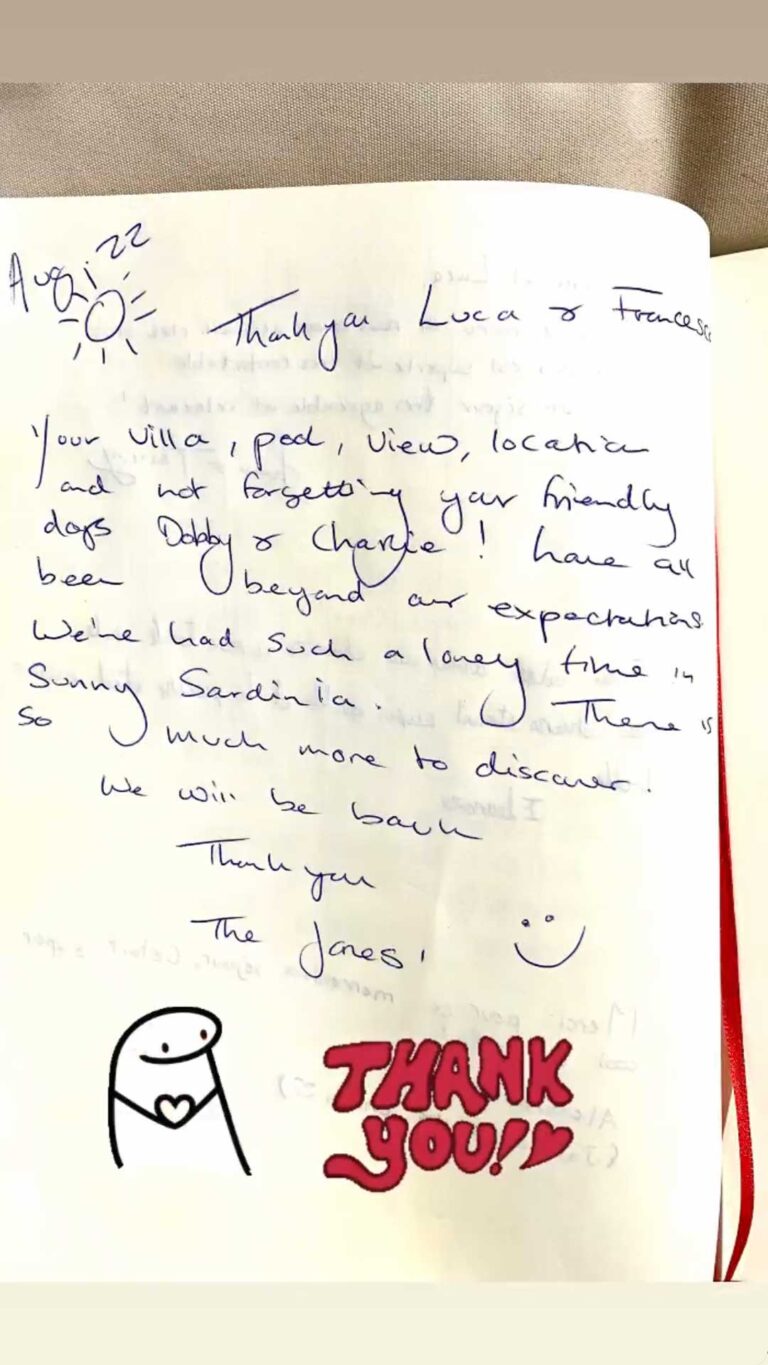 Aug '22
Thank you Luca & Francesc
Your villa, pool, view, location
and not forgetting your friendly
dogs Dobby & Charlie! have all
been beyond our expectations
We've had such a lovely time in
Sunny Sardinia. There is
so much more to discover.
We will be back
Thank you
The Jones'
THANK
YOU!